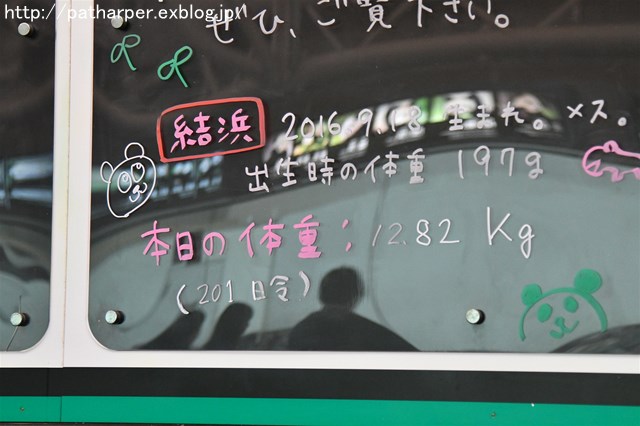 http://patharper.exblog.jp/
ぜひ、ご覧下さい。
結浜 2016.9.18 生まれ。メス。
出生時の体重 197g
本日の体重： 12.82 Kg
(201日令)